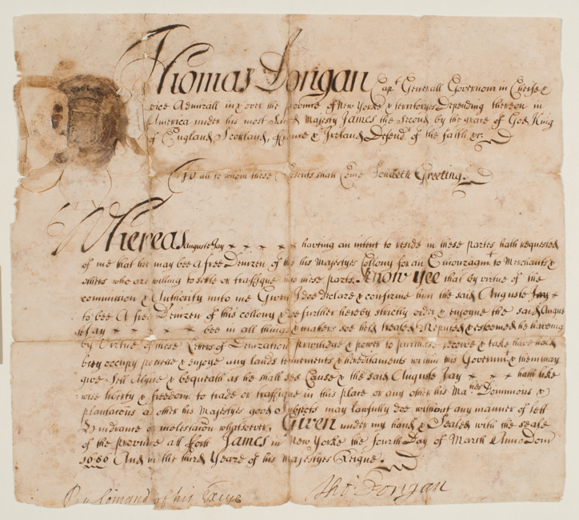 Thomas Dongan Capt Generall Governour in Cheife &
vice Admirall in & over the province of New Yorke & territoryes Depending thereon in
America under his most Majesty James the Second by the grace of God King
of England Scotland, & Ireland Defendr of the faith &c.
To all to whom these Presents shall Come Sendeth Greeting.
Whereas Auguste Jay having an intent to reside in these partes hath requested
of me that he may bee a free Denizen of his Majestyes Collony for an Encouragmt to Merchants &
others who are willing to settle or traffique in these partes. Know Yee that by virtue of the
commission & Authority unto me Given I doe declare & confirme him the said Auguste Jay
to bee A free Denizen of this collony & doe further hereby strictly order & enjoyne the said Augus
te Jay bee in all things & matters soe held treated Reputed & esteemed he having
by Virtue of these Letters of Denization priviledge & power to purchase receive & take have hold
buy occupy possesse & enjoye any lands tenements & hereditaments within this Governmt & them may
give sell Aliene & bequeath as he shall see Cause & the said Auguste Jay hath like
wise liberty & freedome to trade or traffique in this place or any other his Maties Dominions &
plantacons as other his Majestyes good Subjects may lawfully doe without any manner of lett
hindrance or molestacon whatsoever. Given under my hand & Sealed with the seale
of the province att fort James in New Yorke the fourth Day of March Anno Dom
And in the third Yeare of his Majestyes Reigne.
By Comand of his
Tho: Dongan